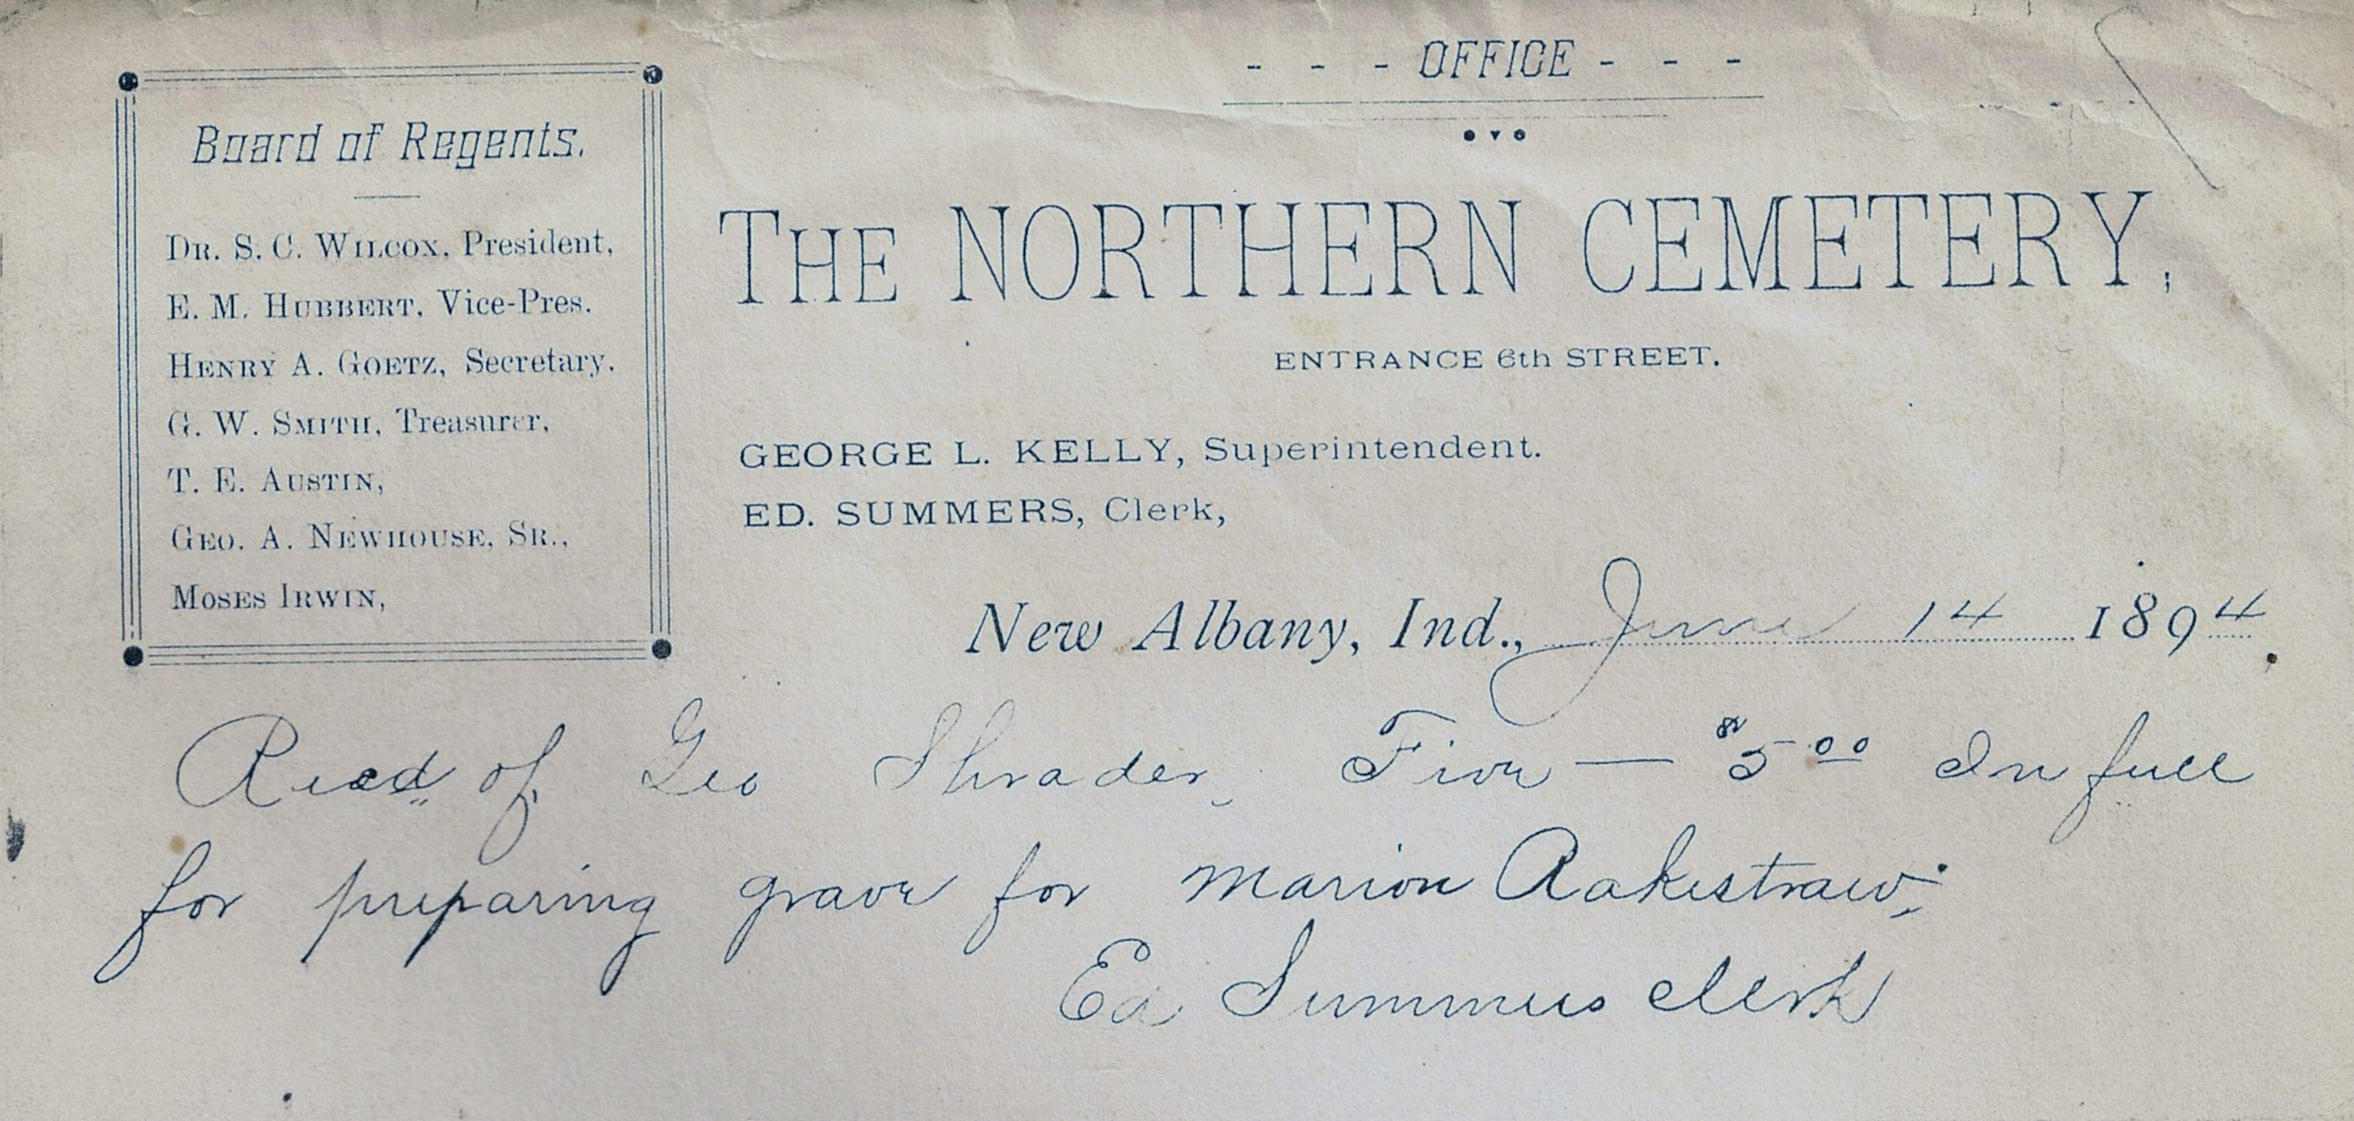 - - - OFFICE - - -
Board of Regents.
DR. S. C. WILCOX, President,
E. M. HUBBERT, Vice-Pres.
HENRY A. GOETZ, Secretary.
G. W. SMITH, Treasurer,
T. E. AUSTIN,
GEO. A. NEWHOUSE, SR.,
MOSES IRWIN,
THE NORTHERN CEMETERY,
ENTRANCE 6th STREET.
GEORGE L. KELLY, Superintendent.
ED. SUMMERS, Clerk,
New Albany, Ind., June 14 1894
Recd of Geo Shrader, Five — $5 00 In full
for preparing grave for Marion Rakestraw,
Ed Summers clerk